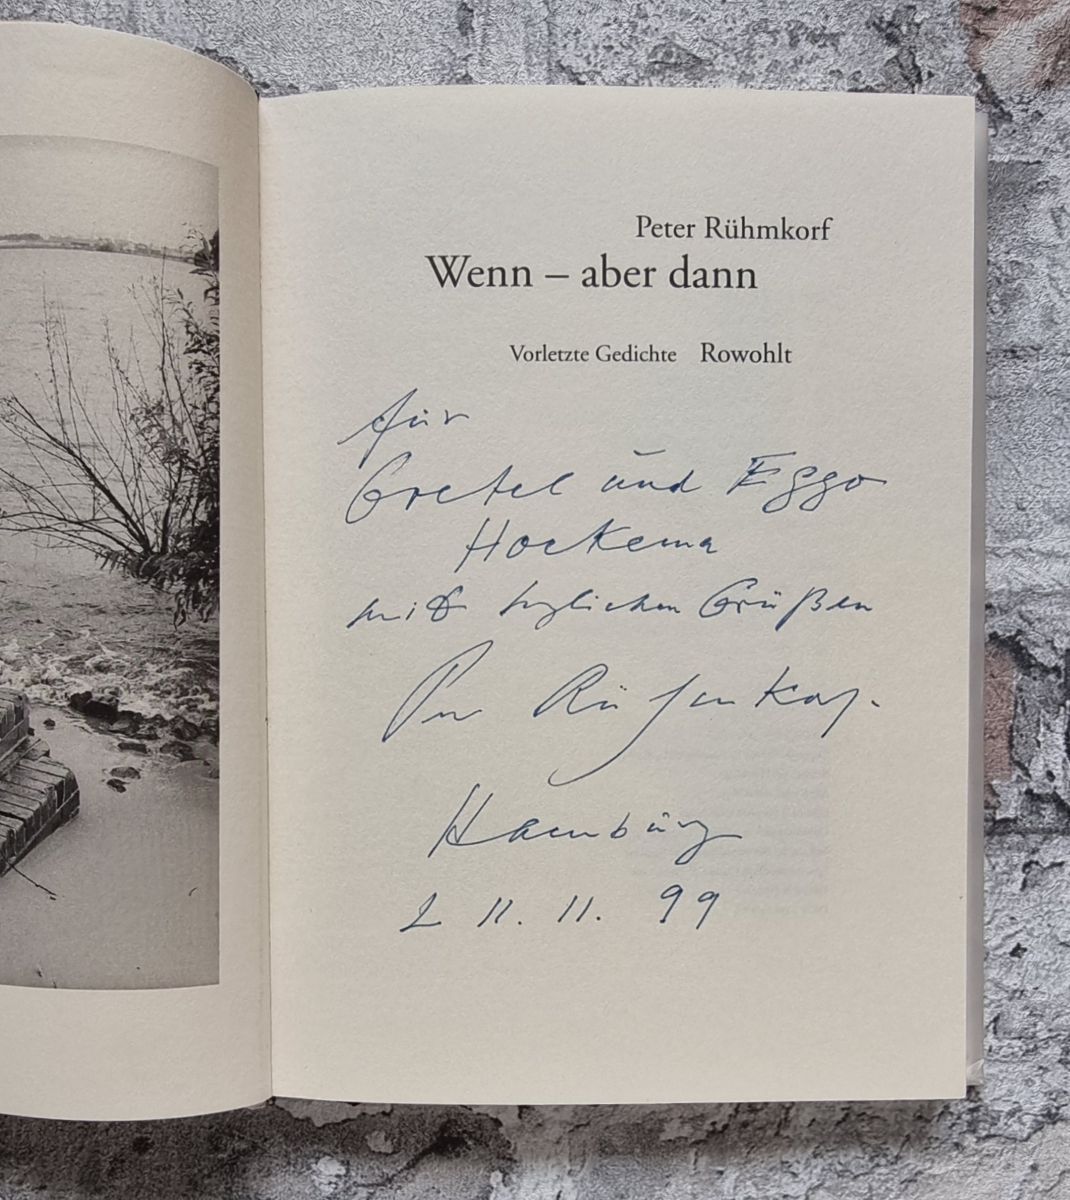 Peter Rühmkorf
Wenn – aber dann
Vorletzte Gedichte Rowohlt
für
Gretel und Eggo
Hockema
mit herzlichen Grüßen
Peter Rühmkorf
Hamburg
11. 99